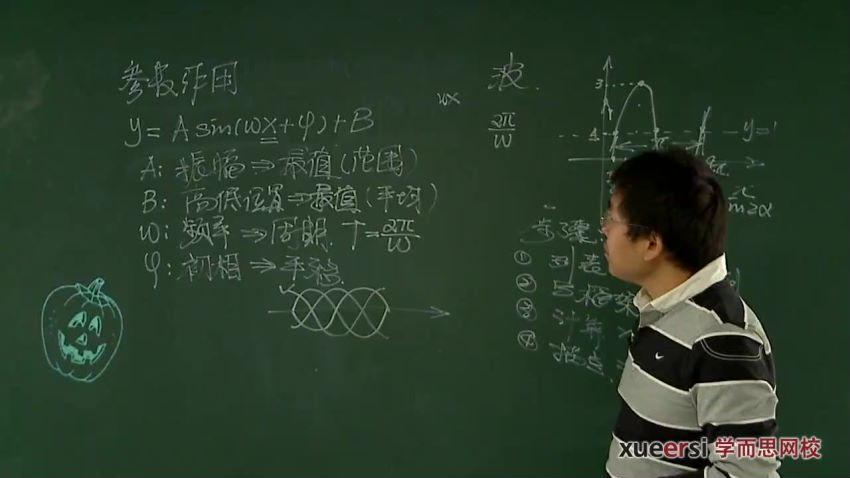 参数作用
y = A sin(ωx+φ)+B
A: 振幅 ⇒ 最值(范围)
B: 高低位置 ⇒ 最值(平均)
ω: 频率 ⇒ 周期 T = 2π/ω
φ: 初相 ⇒ 平移
ωx
波
2π/ω
3
y=1
步骤
① 列表
②
③ 计算
④ 描点
xueersi 学而思网校